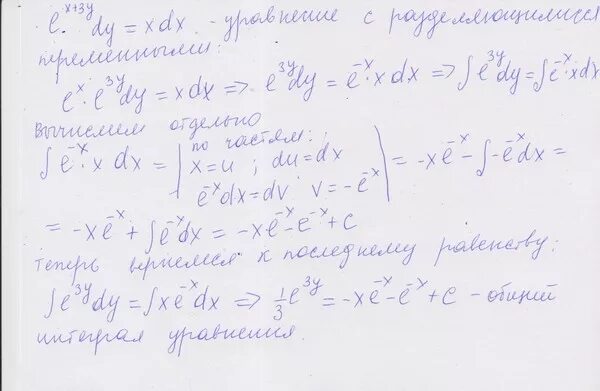 e^{x+3y} dy = x dx - уравнение с разделяющимися
переменными:
e^x · e^{3y} dy = x dx => e^{3y} dy = e^{-x} · x dx => ∫ e^{3y} dy = ∫ e^{-x} · x dx
Вычислим отдельно
∫ e^{-x} · x dx = | по частям: x = u ; du = dx e^{-x} dx = dv v = -e^{-x} | = -x e^{-x} - ∫ -e^{-x} dx =
= -x e^{-x} + ∫ e^{-x} dx = -x e^{-x} - e^{-x} + C
Теперь вернемся к последнему равенству:
∫ e^{3y} dy = ∫ x e^{-x} dx => 1/3 e^{3y} = -x e^{-x} - e^{-x} + C - общий
интеграл уравнения.